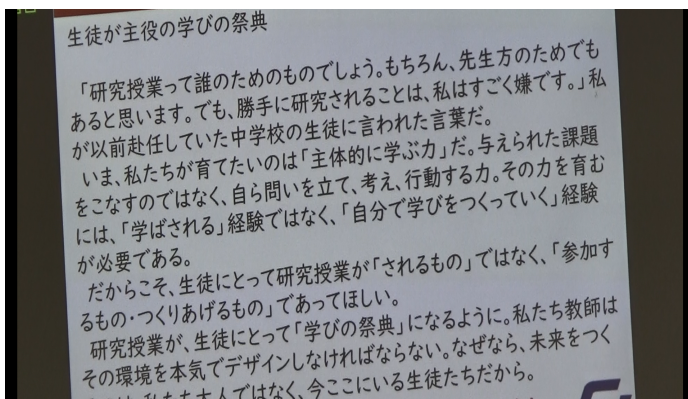 生徒が主役の学びの祭典
「研究授業って誰のためのものでしょう。もちろん、先生方のためでも
あると思います。でも、勝手に研究されることは、私はすごく嫌です。」私
が以前赴任していた中学校の生徒に言われた言葉だ。
いま、私たちが育てたいのは「主体的に学ぶ力」だ。与えられた課題
をこなすのではなく、自ら問いを立て、考え、行動する力。その力を育む
には、「学ばされる」経験ではなく、「自分で学びをつくっていく」経験
が必要である。
だからこそ、生徒にとって研究授業が「されるもの」ではなく、「参加す
るもの・つくりあげるもの」であってほしい。
研究授業が、生徒にとって「学びの祭典」になるように。私たち教師は
その環境を本気でデザインしなければならない。なぜなら、未来をつく
私たち大人ではなく、今ここにいる生徒たちだから。